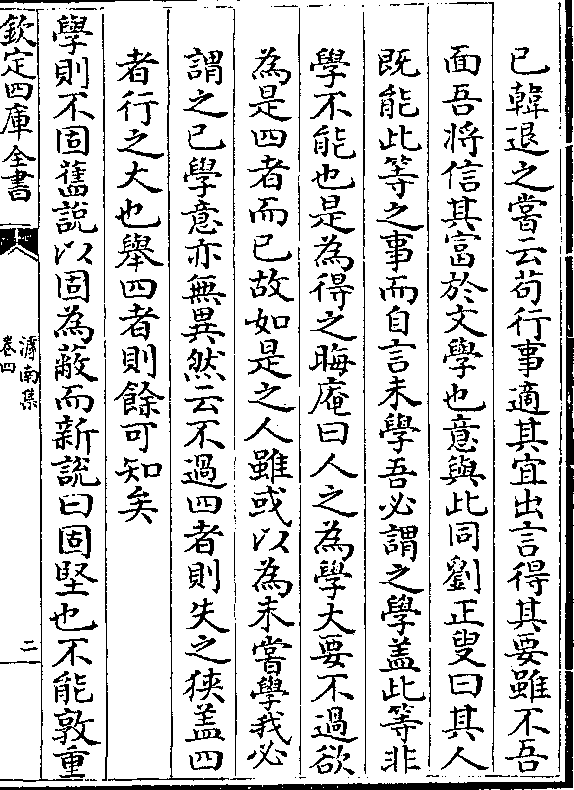 已韓退之嘗云苟行事適其宜出言得其要雖不吾
面吾將信其富於文學也意與此同劉正叟曰其人
既能此等之事而自言未學吾必謂之學盖此等非
學不能也是為得之晦庵曰人之為學大要不過欲
為是四者而已故如是之人雖或以為未嘗學我必
謂之已學意亦無異然云不過四者則失之狹盖四
者行之大也舉四者則餘可知矣
學則不固舊說以固為蔽而新說曰固堅也不能敦重
欽定四庫全書
滹南集
卷四
二